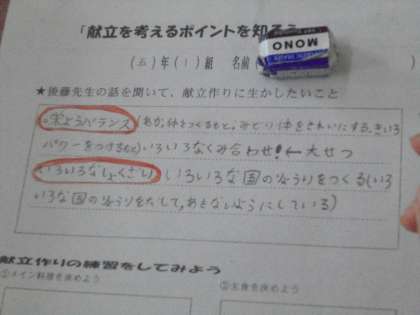 「献立を考えるポイントを知ろう
(五)年(1)組 名前(
MONO
★後藤先生の話を聞いて、献立作りに生かしたいこと
・栄ようバランス(あか,体をつくるもと。みどり体をきれいにする,きいろ
パワーをつけるもと)いろいろなくみ合わせ!←大せつ
いろいろなしょくざい いろいろな国のりょうりをつくる(いろ
いろな国のりょうりをたして,あきないようにしている)
献立作りの練習をしてみよう
①メイン料理を決めよう
②主食を決めよう